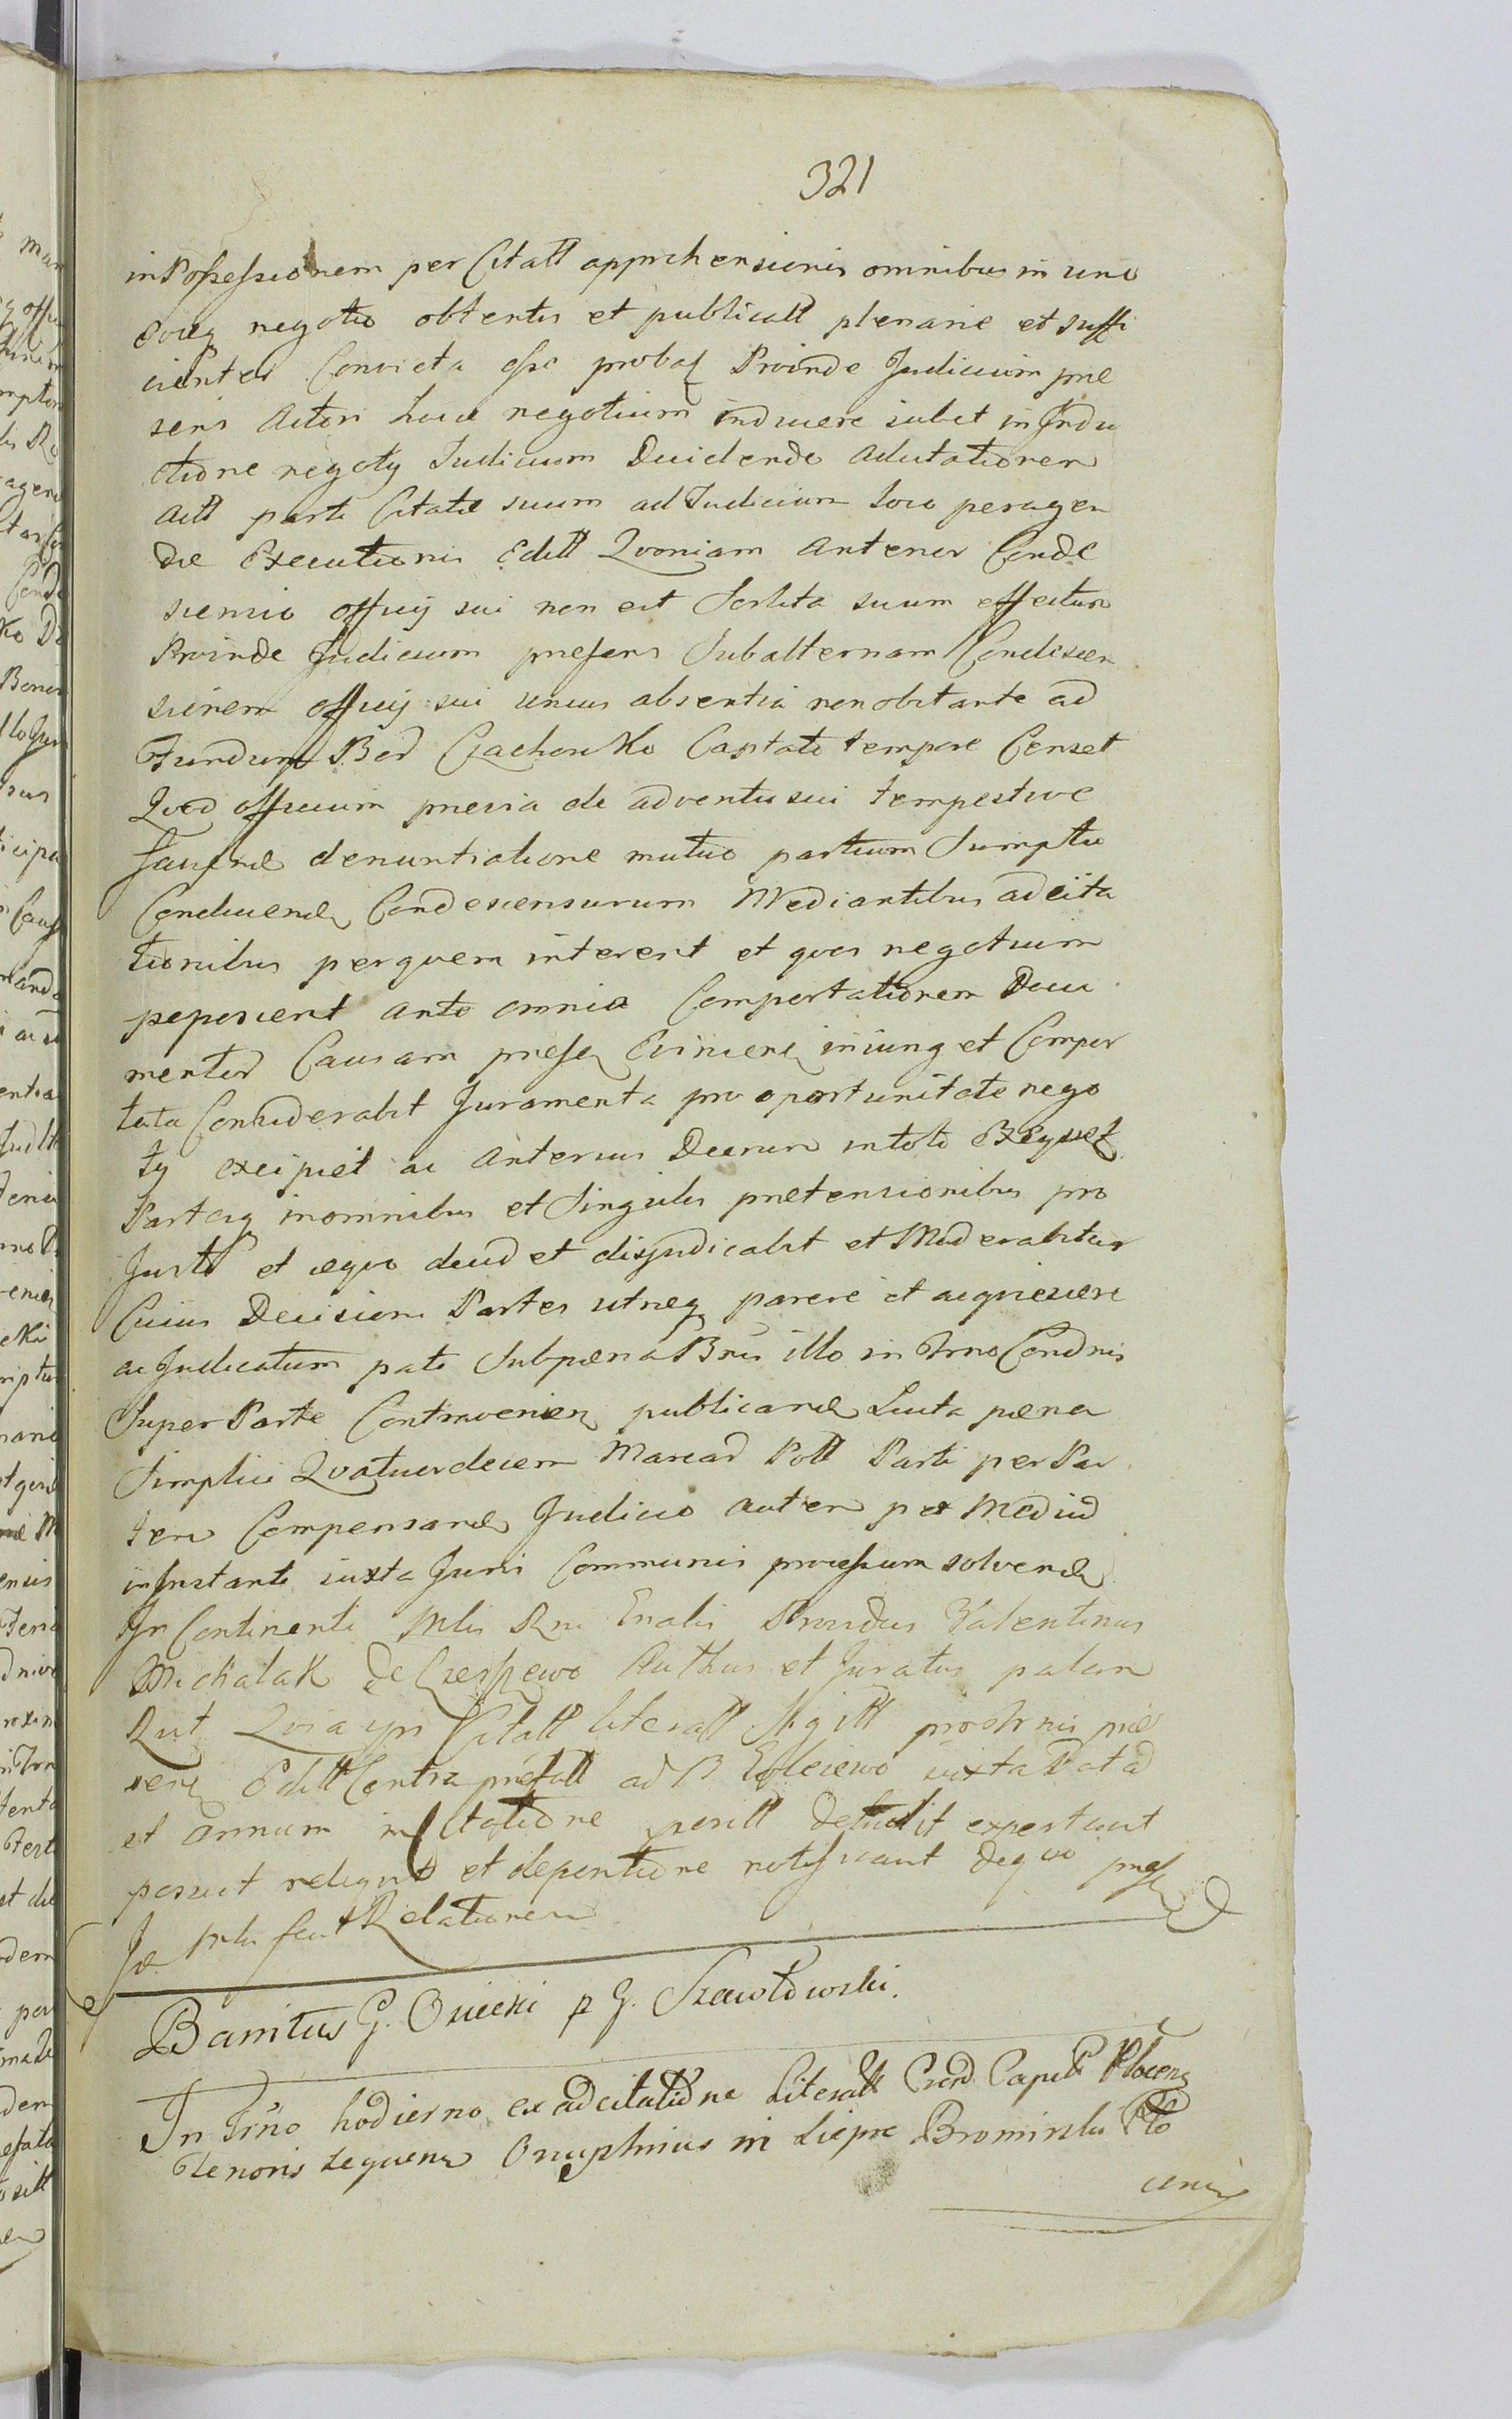 321
in Possessionem per Citatt apprehensionis omnibus in uno
eoq negotio obtentis et publicatt plenarie et suffi
cienter Convicta esse probaq Proinde Judicium præ
sens Actori sua negotium inducere iubet in Indu
ctione negoty Judicium Decidendo Adcitationem
Actt parti Citatæ suum ad Judicium loco peragen
dæ Executionis Editt Quoniam Anterior Conde
scensio officij sui non est Sortita suum effectum
Proinde Judicium præsens Subalternam Condescen
sionem officij sui unius absentia non obstante ad
Fundum Bod Czachowko Captato tempore Censet
Quod officium prævia de adventu sui tempestive
denuntiatione mutuo partium Sumptu
Conducend Condescensurum Mediantibus adcita
tionibus per quem intererit et quos negotium
peposcerit ante omnia Comportationem Docu
mentor Causam præse Evincere iniung et Compor
tata Considerabit Juramenta pro oportunitate nego
ty excipiet ac Anterius Decretum in toto Exequet
Partesq in omnibus et Singulis prætensionibus pro
Justo et æquo decid et disjudicabit et Moderabitur
Cuius Decisioni Partes utræq parere et acquiescere
ac Judicatum pati Sub pæna Bnis illo in Trno Condnis
Super Parte Contraveniens publicand Lucta pæna
Simplici Quatuordecem Marcar Poll Parti per Par
tem Compensand Judicio autem per Mediud
in Instanti iuxta Juris Communis processum solvend
In Continenti Mlis Rni Gnalis Providus Valentinus
Michalak de Authus et Juratus palam
Rut Quia ipse Citatt literall Sigitt pro Trnis præ
sen Editt Contra præfatt ad B iuxta Datad
et Annum in Citatione positt Detulit
posuit reliquit et de positione notificavit de quo præs
Je Mlis fecit Relationem
Banitus G. Osiecki p G. Szawłowski.
In Trno hodierno ex adcitatione Literatt Crord Capti Plocens
Tenoris sequens Onuphrius in Liepre Bromirski Plo
cens